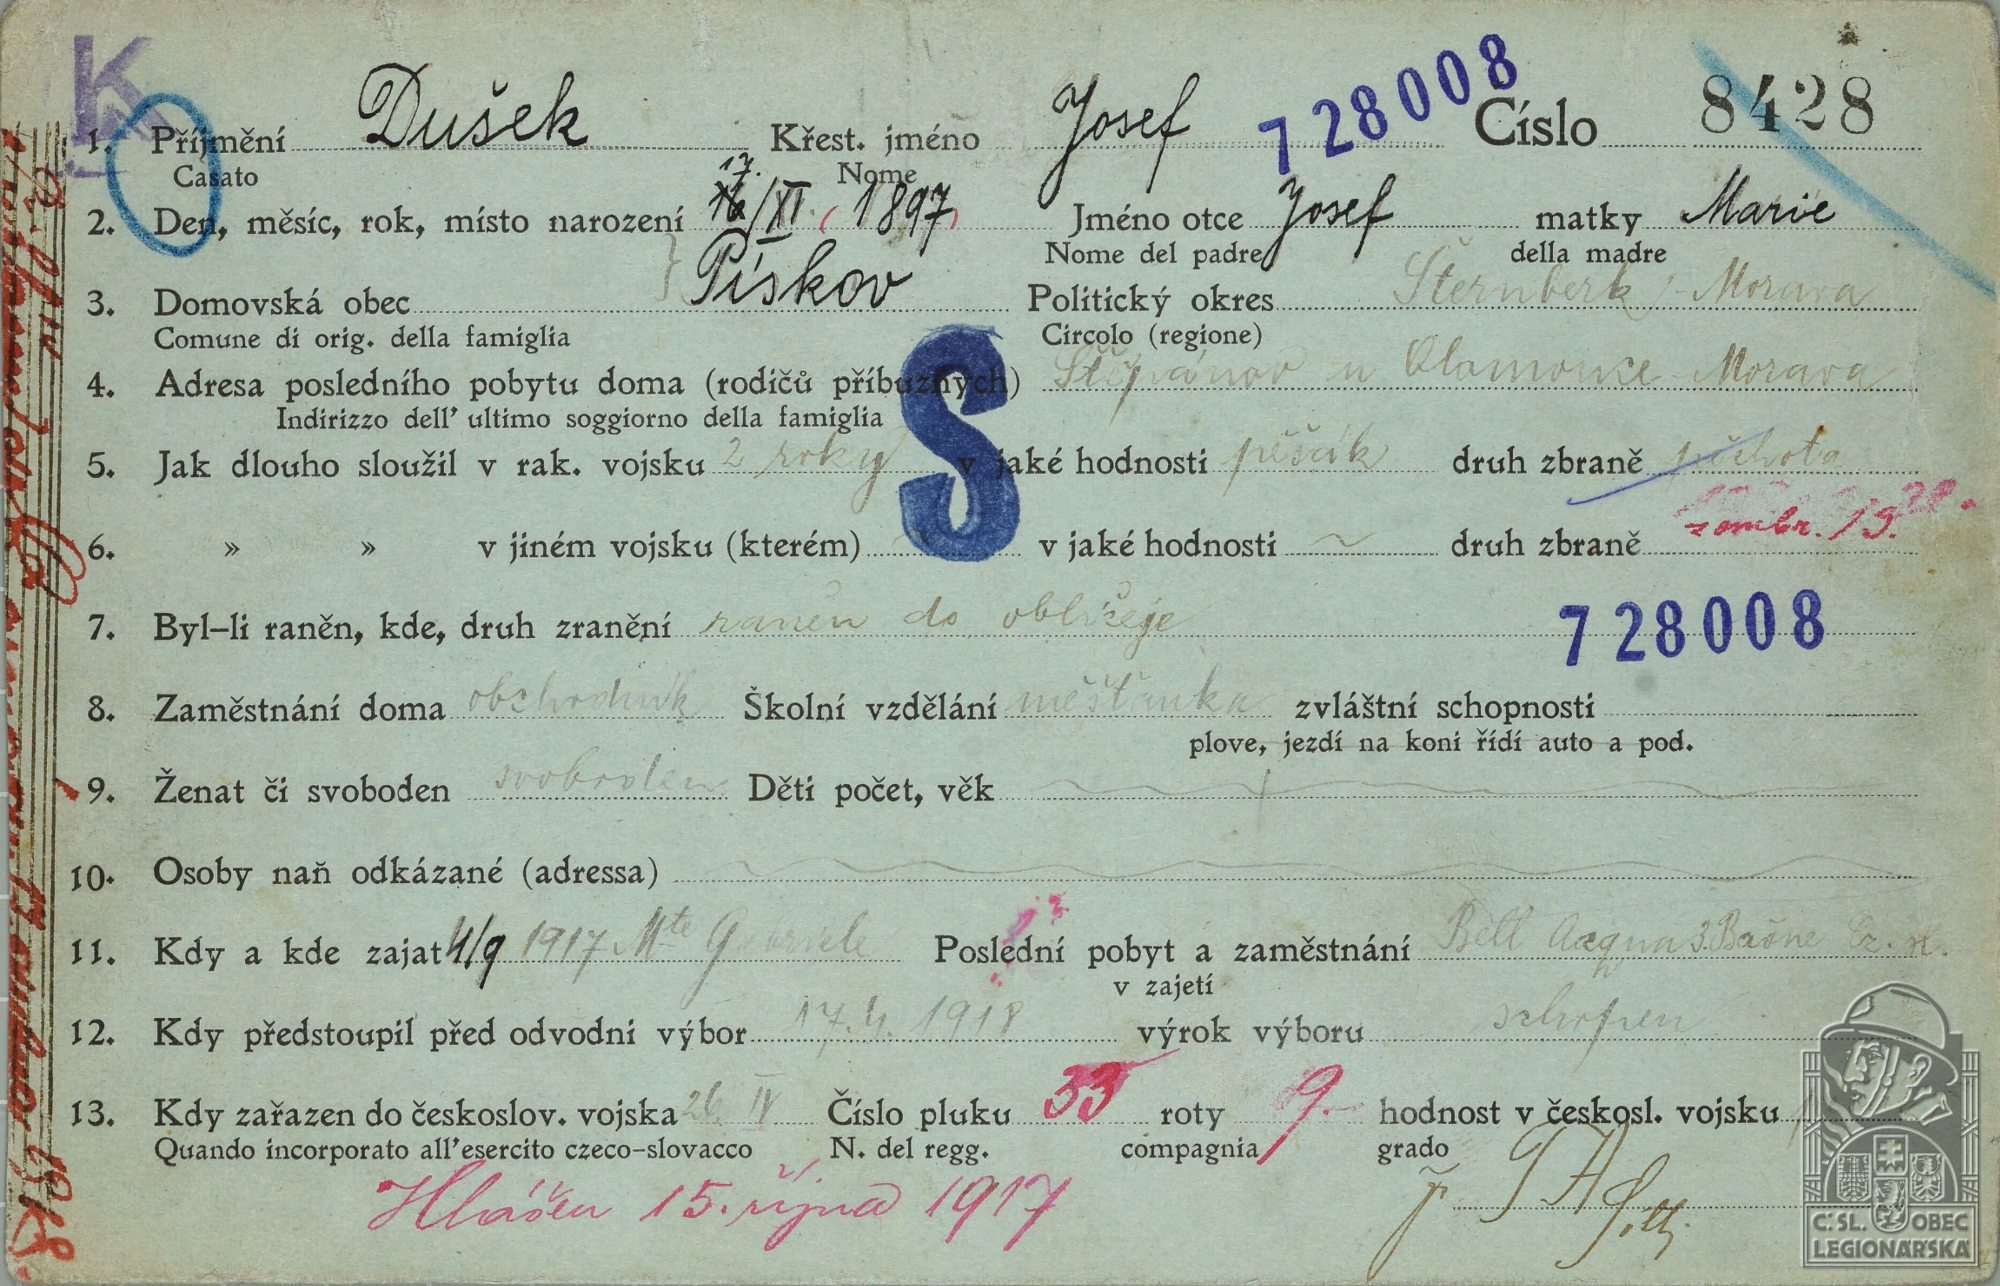 K
728008
1. Příjmení Dušek Křest. jméno Josef Číslo 8428
Casato Nome
17.
2. Den, měsíc, rok, místo narození 16/XI. 1897 Jméno otce Josef matky Marie
Nome del padre della madre
3. Domovská obec Pískov Politický okres Šternberk Morava
Comune di orig. della famiglia Circolo (regione)
4. Adresa posledního pobytu doma (rodičů příbuzných) Štěpánov u Olomouce Morava
Indirizzo dell' ultimo soggiorno della famiglia
S
5. Jak dlouho sloužil v rak. vojsku 2 roky v jaké hodnosti pěšák druh zbraně pěchota
6. » » v jiném vojsku (kterém) v jaké hodnosti druh zbraně
7. Byl-li raněn, kde, druh zranění raněn do obličeje
728008
8. Zaměstnání doma obchodník Školní vzdělání měšťanka zvláštní schopnosti
plove, jezdí na koni řídí auto a pod.
9. Ženat či svoboden svoboden Děti počet, věk
10. Osoby naň odkázané (adressa)
11. Kdy a kde zajat 4/9 1917 Mte Gabriele Poslední pobyt a zaměstnání Bell Acqua 3.
v zajetí
12. Kdy předstoupil před odvodní výbor 17. 4. 1918 výrok výboru schopen
13. Kdy zařazen do českoslov. vojska 26 IV Číslo pluku 33 roty 9. hodnost v českosl. vojsku
Quando incorporato all'esercito czeco-slovacco N. del regg. compagnia grado
Hlášen 15. října 1917
Č.SL. OBEC
LEGIONÁŘSKÁ